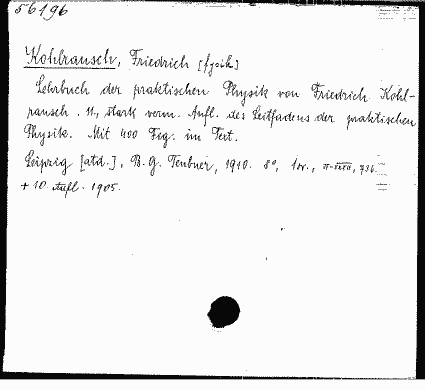 56196
Kohlrausch, Friedrich [fysik]
Lehrbuch der praktischen Physik von Friedrich Kohl-
rausch. 11., stark verm. Aufl. des Leitfadens der praktischen
Physik. Mit 400 Fig. im Text.
Leipzig [atd.], B. G. Teubner, 1910. 8°, 1 sv., 736.
+ 10. Aufl. 1905.